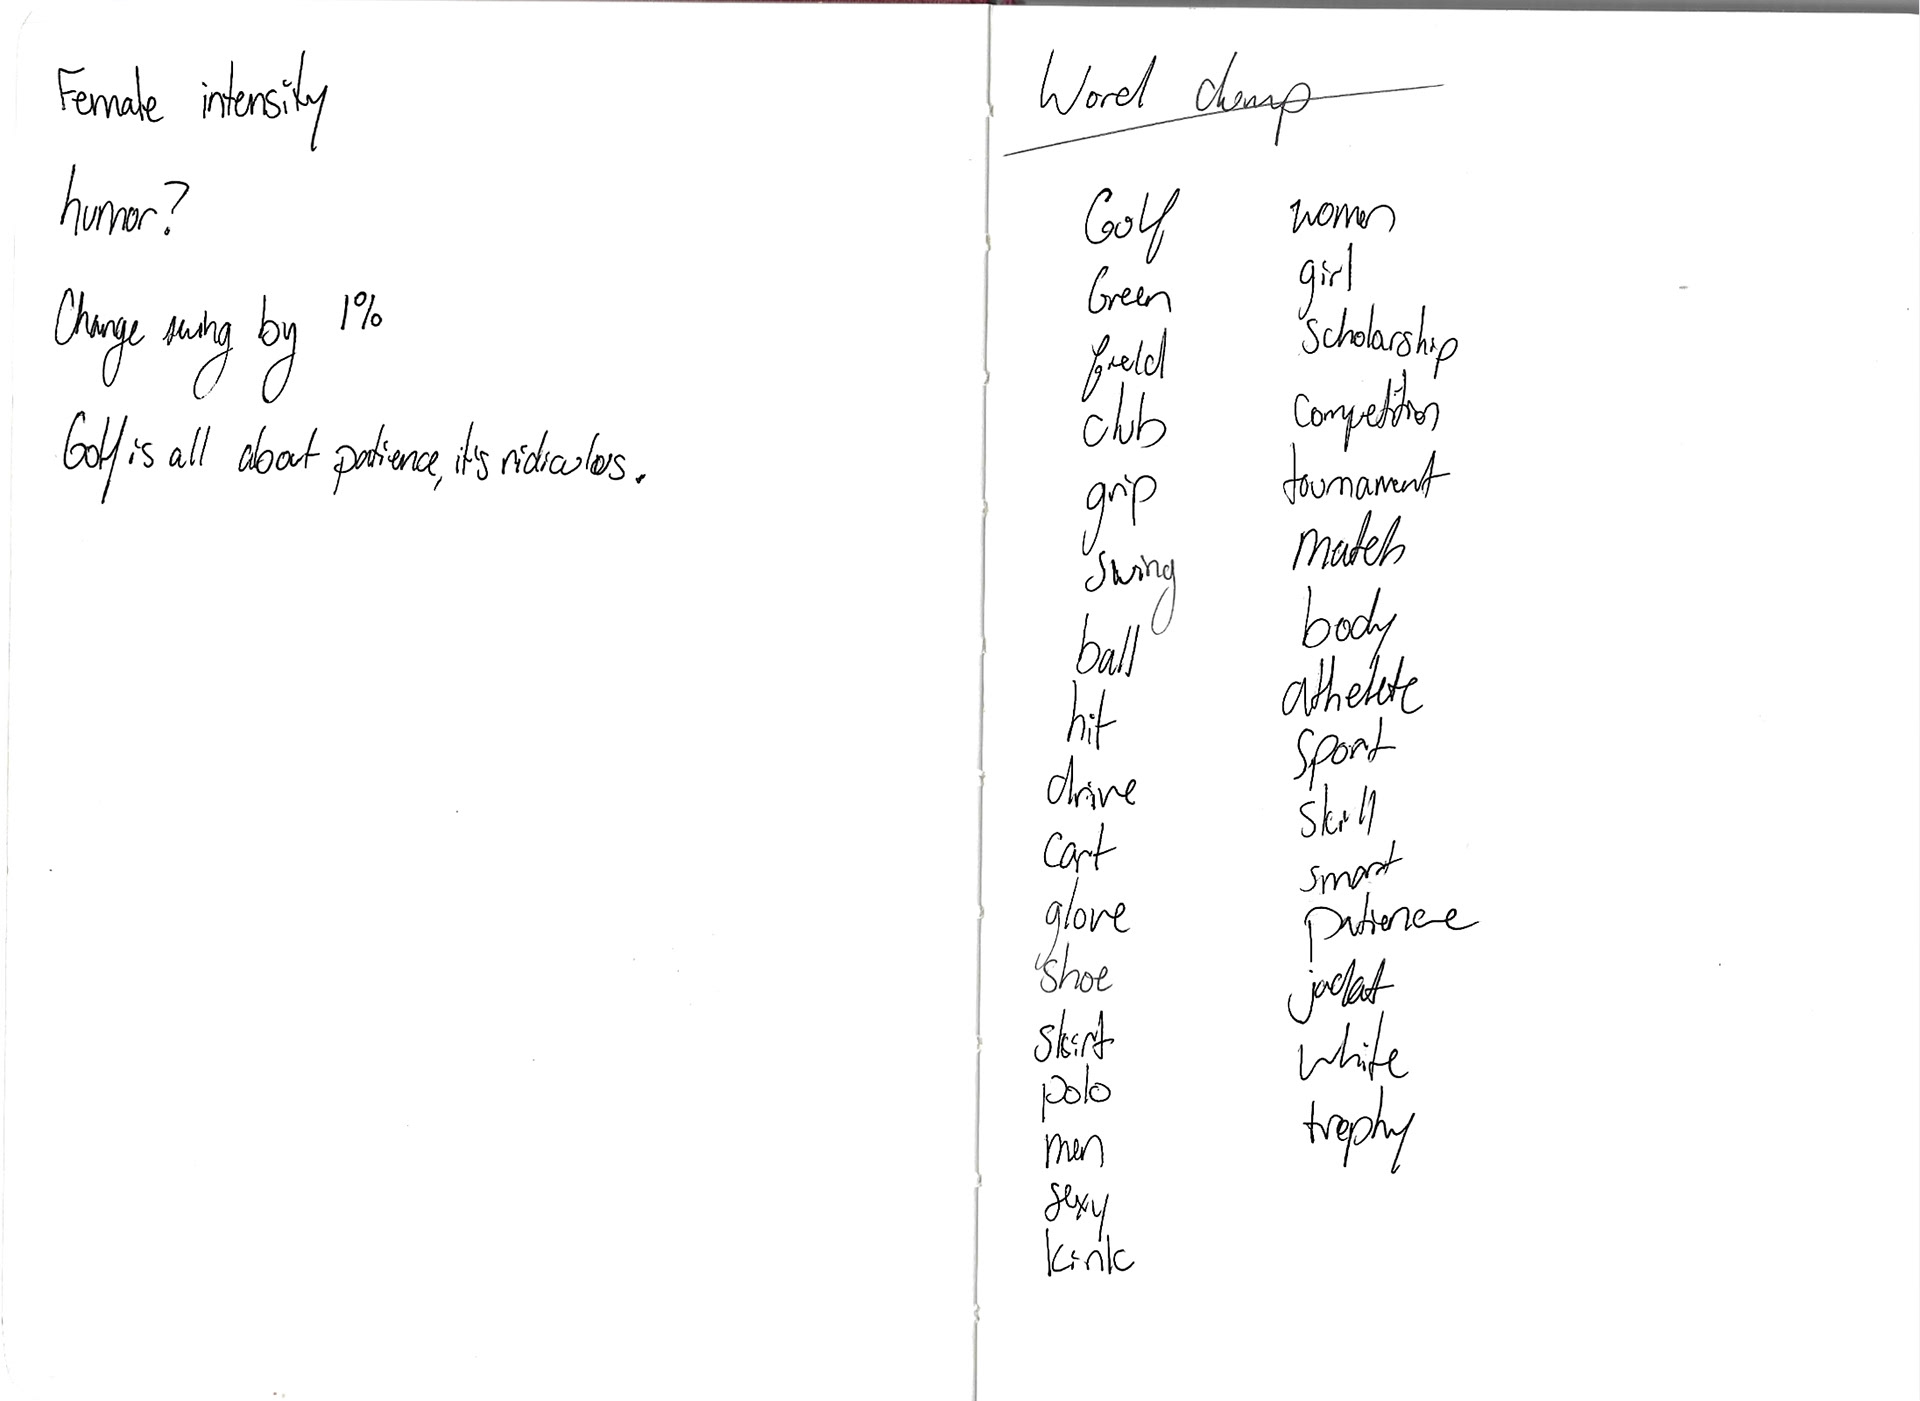 Female intensity
humor?
Change swing by 1%
Golf is all about patience, it's ridiculous.
Word dump
Golf
Green
field
club
grip
swing
ball
hit
drive
cart
glove
shoe
skirt
polo
men
sexy
kink
women
girl
scholarship
competition
tournament
match
body
athelete
sport
skill
smart
patience
jacket
white
trophy